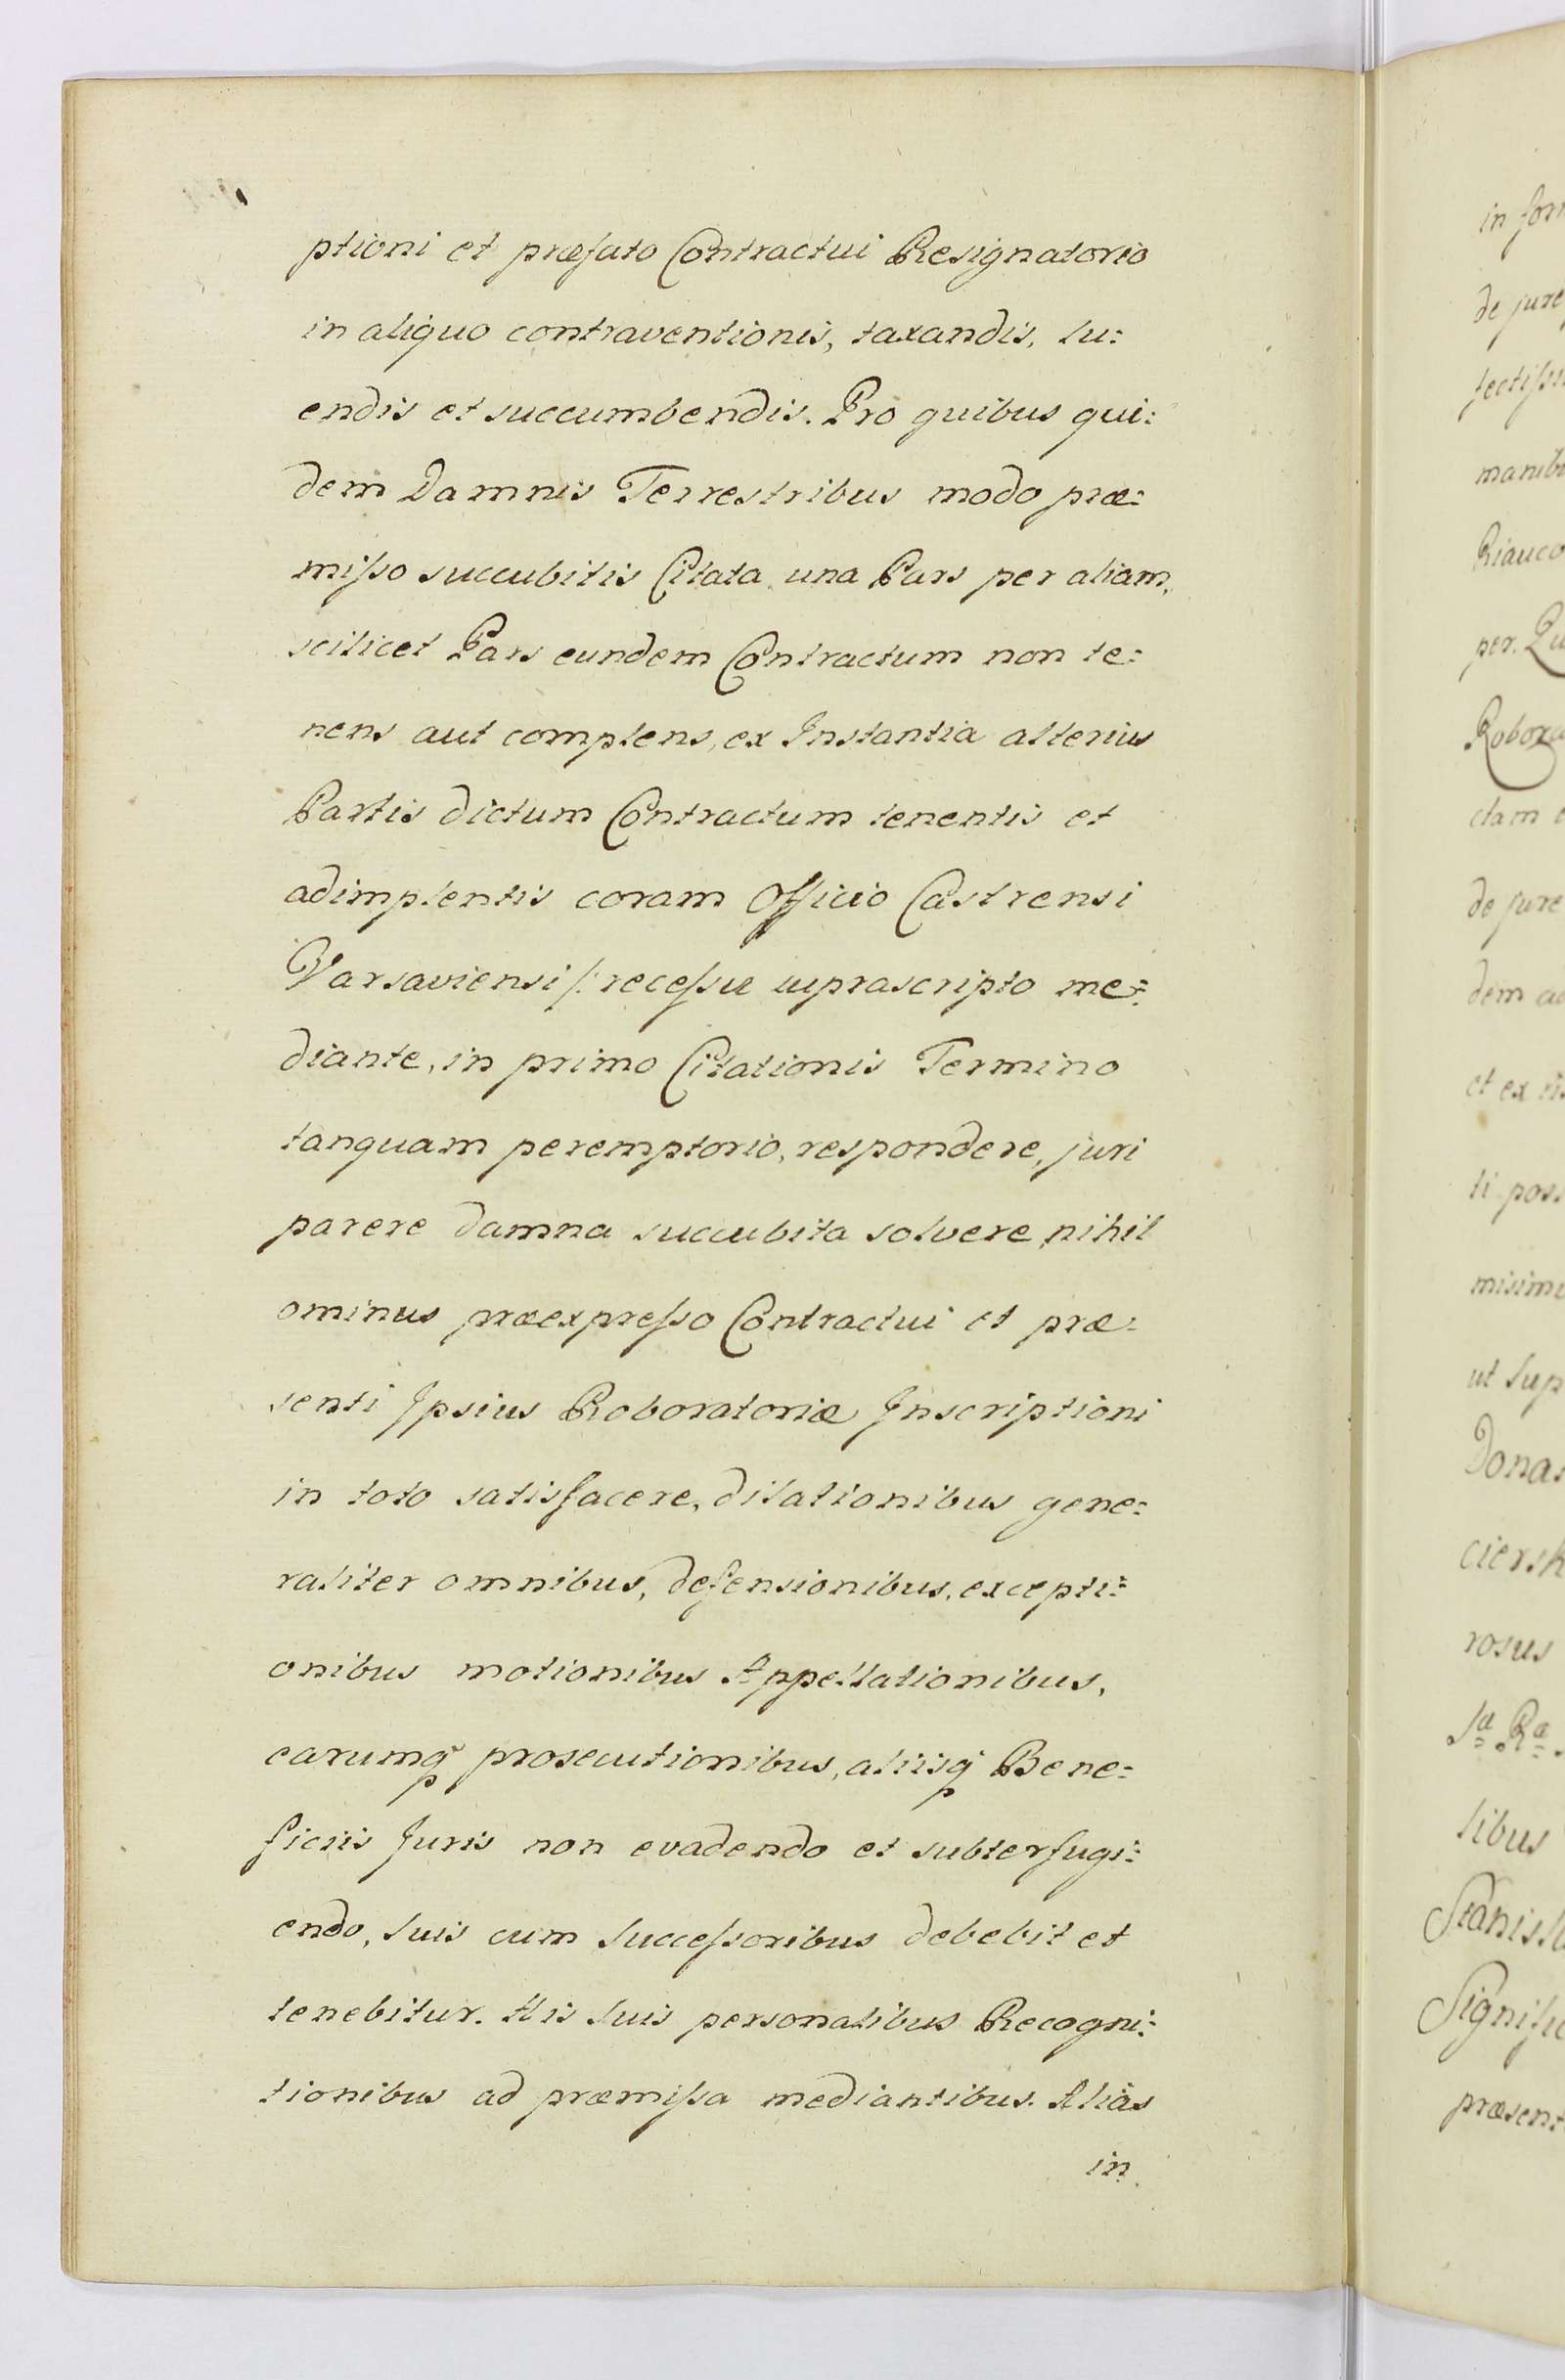 ptioni et præfato Contractui Resignatorio
in aliquo contraventionis, taxandis, lu:
endis et succumbendis. Pro quibus qui:
dem Damnis Terrestribus modo præ:
miſso succubitis Citata una Pars per aliam,
scilicet Pars eundem Contractum non te:
nens aut complens, ex Instantia alterius
Partis dictum Contractum tenentis et
adimplentis coram Officio Castrensi
Varsaviensi /: receſsu suprascripto me:
diante, in primo Citationis Termino
tanquam peremptorio, respondere, juri
parere damna succubita solvere nihil
ominus præexpreſso Contractui et præ:
senti Ipsius Roboratoriæ Inscriptioni
in toto satisfacere, dilationibus gene:
raliter omnibus, defensionibus, excepti:
onibus motionibus Appellationibus,
earumq prosecutionibus, aliisq Bene:
ficiis Juris non evadendo et subterfugi:
endo, suis cum Succeſsoribus debebit et
tenebitur. His suis personalibus Recogni:
tionibus ad præmiſsa mediantibus. Aliàs
in
in for
de jure
fectiſsi
manib
Riauco
per. Qu
Robora
ctam
de jure
dem
et ex
ti pos
misim
ut Sup
Dona
ciersk
rosus
Sæ Ræ
libus
Stanisl
Signific
præsent